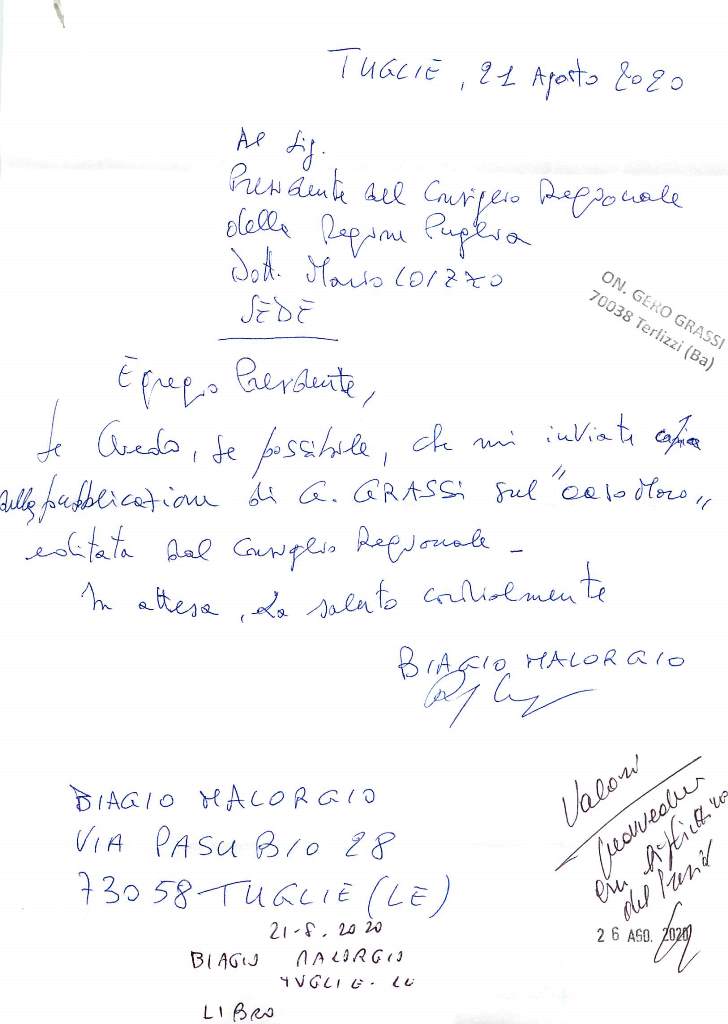 TUGLIE, 21 Agosto 2020
Al Sig.
Presidente del Consiglio Regionale
della Regione Puglia
Dott. Mario LOIZZO
SEDE
ON. GERO GRASSI
70038 Terlizzi (Ba)
Egregio Presidente,
Le chiedo, se possibile, che mi inviate copia
della pubblicazione di G. GRASSI sul "caso Moro"
editata dal Consiglio Regionale -
In attesa, La saluto cordialmente
BIAGIO MALORGIO
BIAGIO MALORGIO
VIA PASUBIO 28
73058 TUGLIE (LE)
21-8.2020
BIAGIO MALORGIO
TUGLIE-LE
LIBRO
Valori
del
26 AGO. 2020